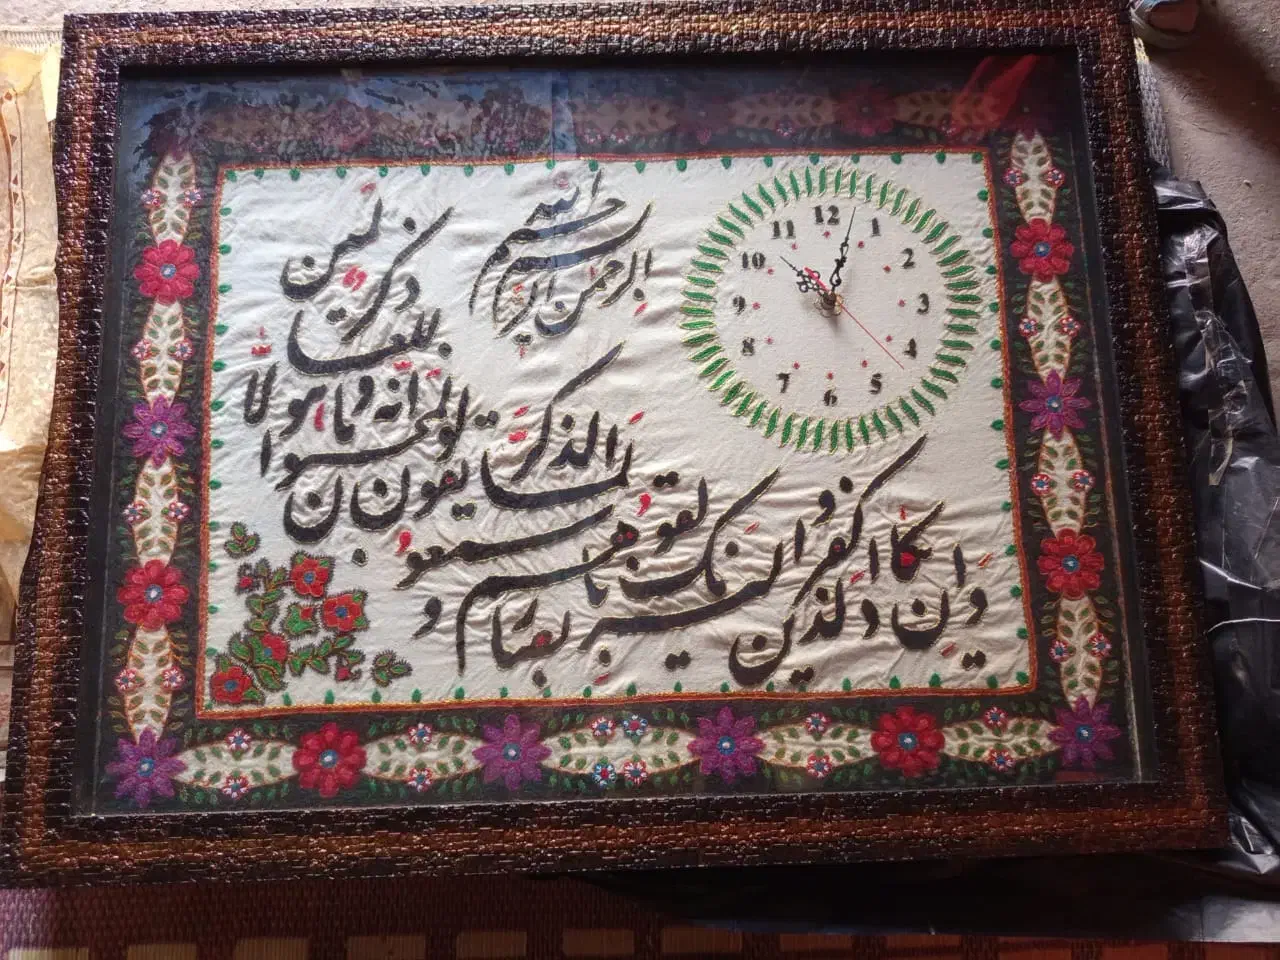 بسم الله الرحمن الرحيم
وان يكاد الذين كفروا ليزلقونك
بابصارهم لما سمعوا الذكر
و يقولون انه لمجنون
وما هو الا ذكر للعالمين
12
1
2
3
4
5
6
7
8
9
10
11